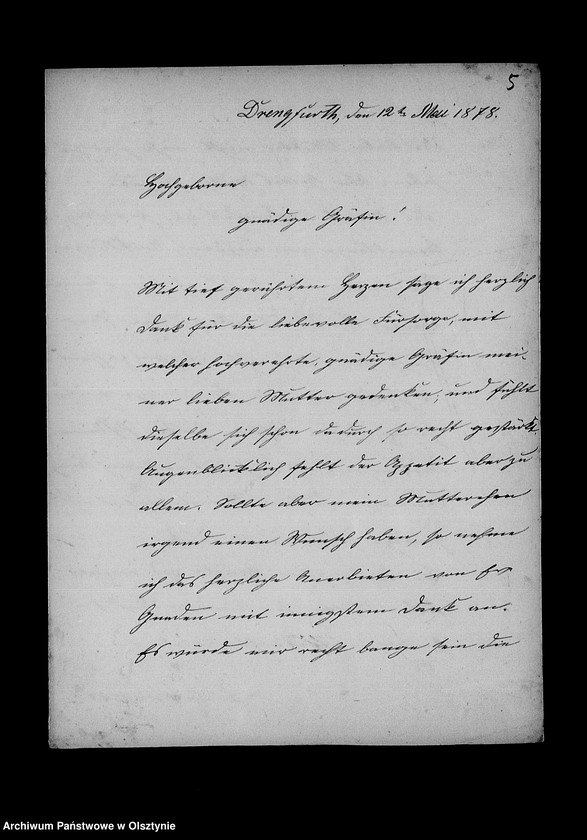 5
Drengfurth, den 12t Mai 1878.
Hochgeborne
gnädige Gräfin!
Mit tief gerührtem Herzen sage ich herzlich
Dank für die liebevolle Fürsorge, mit
welcher hochverehrte, gnädige Gräfin mei-
ner lieben Mutter gedenken, und fühlt
dieselbe sich schon dadurch so recht gestärkt.
Augenblicklich fehlt der Appetit aber zu
allem. Sollte aber mein Mutterchen
irgend einen Wunsch haben, so nehme
ich das herzliche Anerbieten von Ew
Gnaden mit innigstem Dank an.
Es würde mir recht bange sein die
Archiwum Państwowe w Olsztynie